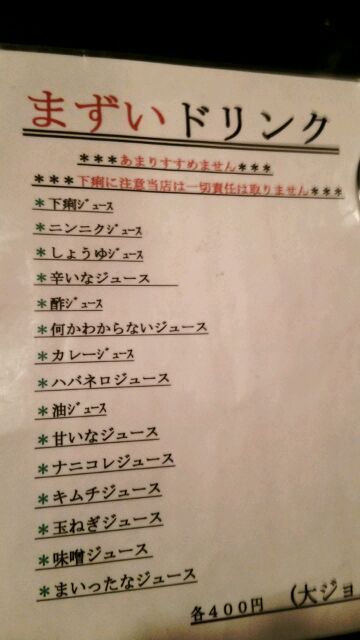 まずいドリンク
***あまりすすめません***
***下痢に注意当店は一切責任は取りません***
*下痢ｼﾞｭｰｽ
*ニンニクｼﾞｭｰｽ
*しょうゆｼﾞｭｰｽ
*辛いなジュース
*酢ｼﾞｭｰｽ
*何かわからないジュース
*カレーｼﾞｭｰｽ
*ハバネロジュース
*油ｼﾞｭｰｽ
*甘いなジュース
*ナニコレジュース
*キムチジュース
*玉ねぎジュース
*味噌ジュース
*まいったなジュース
各４００円 （大ジョ